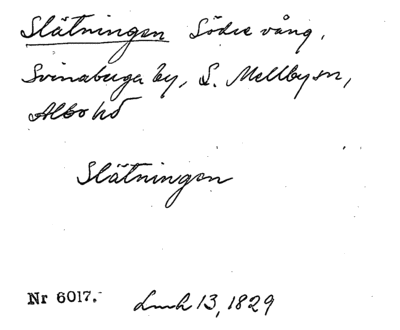 Slätningen Södre vång,
Svinaberga by, S. Mellby sn,
Albo hd
Slätningen
Nr 6017. Lmh 13, 1829